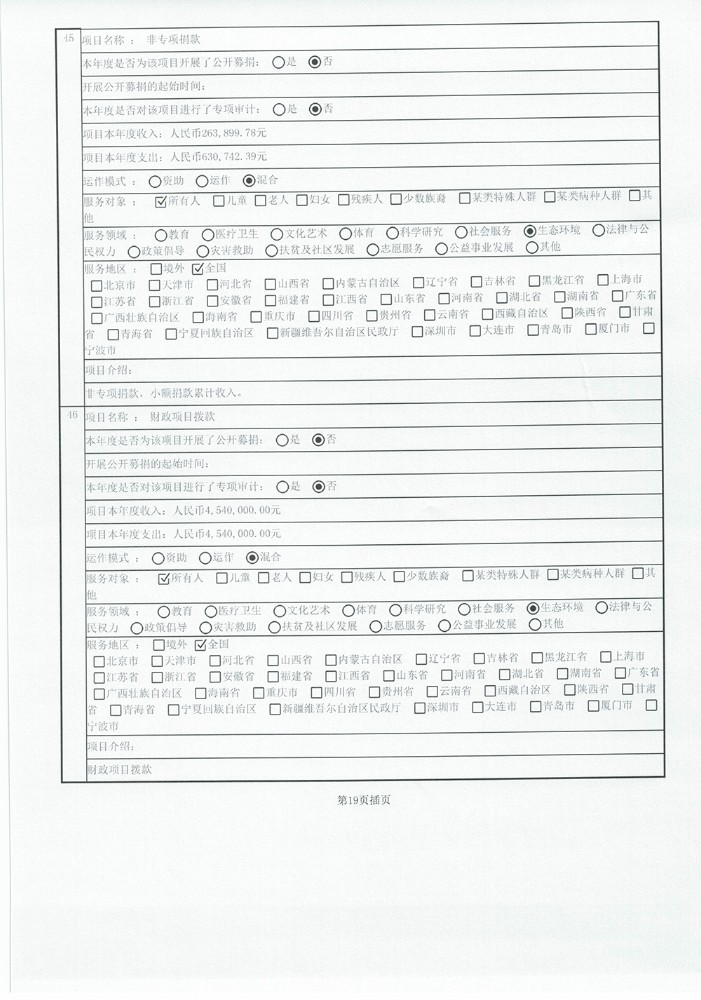 45 项目名称 ： 非专项捐款
本年度是否为该项目开展了公开募捐： ○是 ◉否
开展公开募捐的起始时间：
本年度是否对该项目进行了专项审计： ○是 ◉否
项目本年度收入：人民币263,899.78元
项目本年度支出：人民币630,742.39元
运作模式 ： ○资助 ○运作 ◉混合
服务对象 ： ☑所有人 □儿童 □老人 □妇女 □残疾人 □少数族裔 □某类特殊人群 □某类病种人群 □其
他
服务领域 ： ○教育 ○医疗卫生 ○文化艺术 ○体育 ○科学研究 ○社会服务 ◉生态环境 ○法律与公
民权力 ○政策倡导 ○灾害救助 ○扶贫及社区发展 ○志愿服务 ○公益事业发展 ○其他
服务地区 ： □境外 ☑全国
□北京市 □天津市 □河北省 □山西省 □内蒙古自治区 □辽宁省 □吉林省 □黑龙江省 □上海市
□江苏省 □浙江省 □安徽省 □福建省 □江西省 □山东省 □河南省 □湖北省 □湖南省 □广东省
□广西壮族自治区 □海南省 □重庆市 □四川省 □贵州省 □云南省 □西藏自治区 □陕西省 □甘肃
省 □青海省 □宁夏回族自治区 □新疆维吾尔自治区民政厅 □深圳市 □大连市 □青岛市 □厦门市 □
宁波市
项目介绍：
非专项捐款，小额捐款累计收入。
46 项目名称 ： 财政项目拨款
本年度是否为该项目开展了公开募捐： ○是 ◉否
开展公开募捐的起始时间：
本年度是否对该项目进行了专项审计： ○是 ◉否
项目本年度收入：人民币4,540,000.00元
项目本年度支出：人民币4,540,000.00元
运作模式 ： ○资助 ○运作 ◉混合
服务对象 ： ☑所有人 □儿童 □老人 □妇女 □残疾人 □少数族裔 □某类特殊人群 □某类病种人群 □其
他
服务领域 ： ○教育 ○医疗卫生 ○文化艺术 ○体育 ○科学研究 ○社会服务 ◉生态环境 ○法律与公
民权力 ○政策倡导 ○灾害救助 ○扶贫及社区发展 ○志愿服务 ○公益事业发展 ○其他
服务地区 ： □境外 ☑全国
□北京市 □天津市 □河北省 □山西省 □内蒙古自治区 □辽宁省 □吉林省 □黑龙江省 □上海市
□江苏省 □浙江省 □安徽省 □福建省 □江西省 □山东省 □河南省 □湖北省 □湖南省 □广东省
□广西壮族自治区 □海南省 □重庆市 □四川省 □贵州省 □云南省 □西藏自治区 □陕西省 □甘肃
省 □青海省 □宁夏回族自治区 □新疆维吾尔自治区民政厅 □深圳市 □大连市 □青岛市 □厦门市 □
宁波市
项目介绍：
财政项目拨款
第19页插页